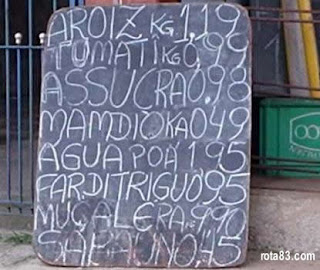 AROIZ KG 1,98
TUMATI KG 0,98
ASSUCRA 0,98
MAMDIOKA 0,49
AGUA POA 1,95
FARDITRIGU 0,95
MUÇAL ERA KG 9,90
0,45
rota83.com